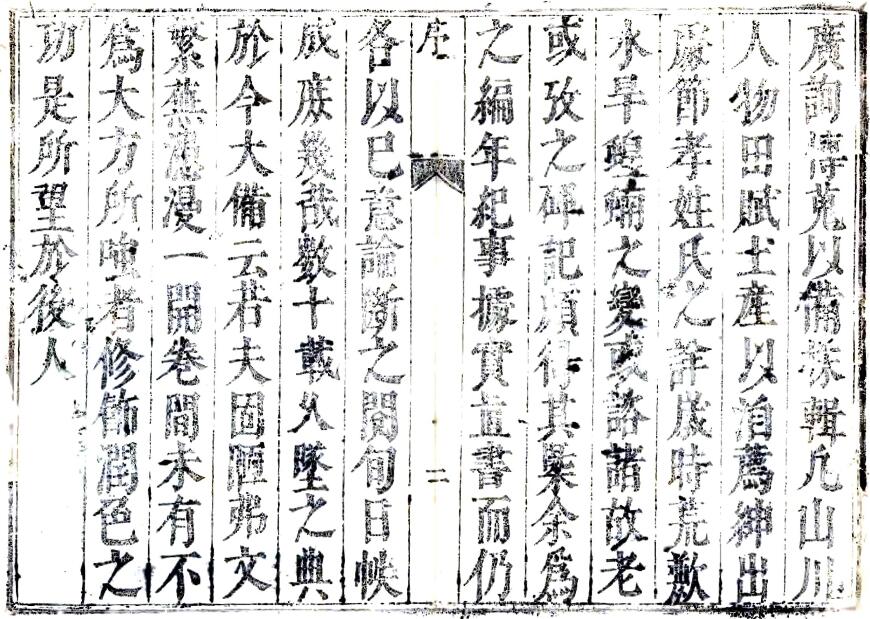 廣詢博克以備採輯凡山川
人物田賦土產以洎薦紳出
處節孝姓氏之詳歲時荒歉
水旱蝗蝻之變或諮諸故老
或攷之碑記頗得其槩余為
之編年紀事據實直書而仍
序
二
各以己意論斷之閱旬日帙
成庶幾哉數十載久墜之典
於今大備云若夫固陋弗文
繁蕪漫一開卷間未有不
為大方所嗤者修飾潤色之
功是所望於後人